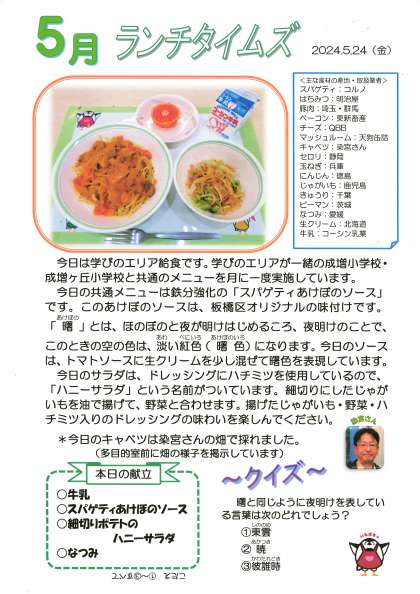 5月 ランチタイムズ
2024.5.24（金）
<主な食材の産地・取扱業者>
スパゲティ：コルノ
はちみつ：明治屋
豚肉：埼玉・群馬
ベーコン：東新畜産
チーズ：QBB
マッシュルーム：天狗缶詰
キャベツ：染宮さん
セロリ：静岡
玉ねぎ：兵庫
にんじん：徳島
じゃがいも：鹿児島
きゅうり：千葉
ピーマン：茨城
なつみ：愛媛
生クリーム：北海道
牛乳：コーシン乳業
今日は学びのエリア給食です。学びのエリアが一緒の成増小学校・
成増ヶ丘小学校と共通のメニューを月に一度実施しています。
今日の共通メニューは鉄分強化の「スパゲティあけぼのソース」
です。このあけぼのソースは、板橋区オリジナルの味付けです。
あけぼの
「曙」とは、ほのぼのと夜が明けはじめるころ、夜明けのことで、
あわ べにいろ あけぼのいろ
このときの空の色は、淡い紅色（曙色）になります。今日のソース
は、トマトソースに生クリームを少し混ぜて曙色を表現しています。
今日のサラダは、ドレッシングにハチミツを使用しているので、
「ハニーサラダ」という名前がついています。細切りにしたじゃが
いもを油で揚げて、野菜と合わせます。揚げたじゃがいも・野菜・ハ
チミツ入りのドレッシングの味わいを楽しんでください。
＊今日のキャベツは染宮さんの畑で採れました。
（多目的室前に畑の様子を掲示しています）
染宮さん
本日の献立
○牛乳
○スパゲティあけぼのソース
○細切りポテトの
ハニーサラダ
○なつみ
～クイズ～
曙と同じように夜明けを表してい
る言葉は次のどれでしょう？
しののめ
①東雲
あかつき
②暁
かわたれどき
③彼誰時
こたえ ①～③すべて